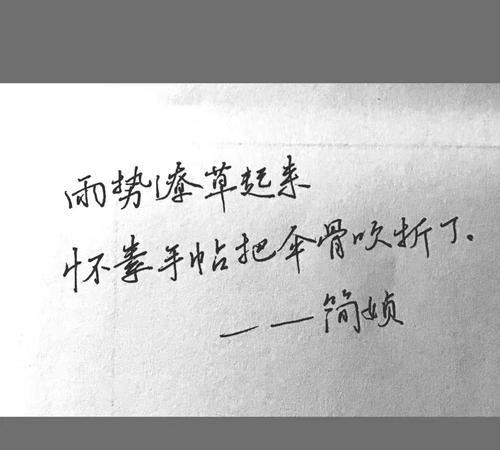 雨势潦草起来
怀素手帖把伞骨吹折了。
——简媜